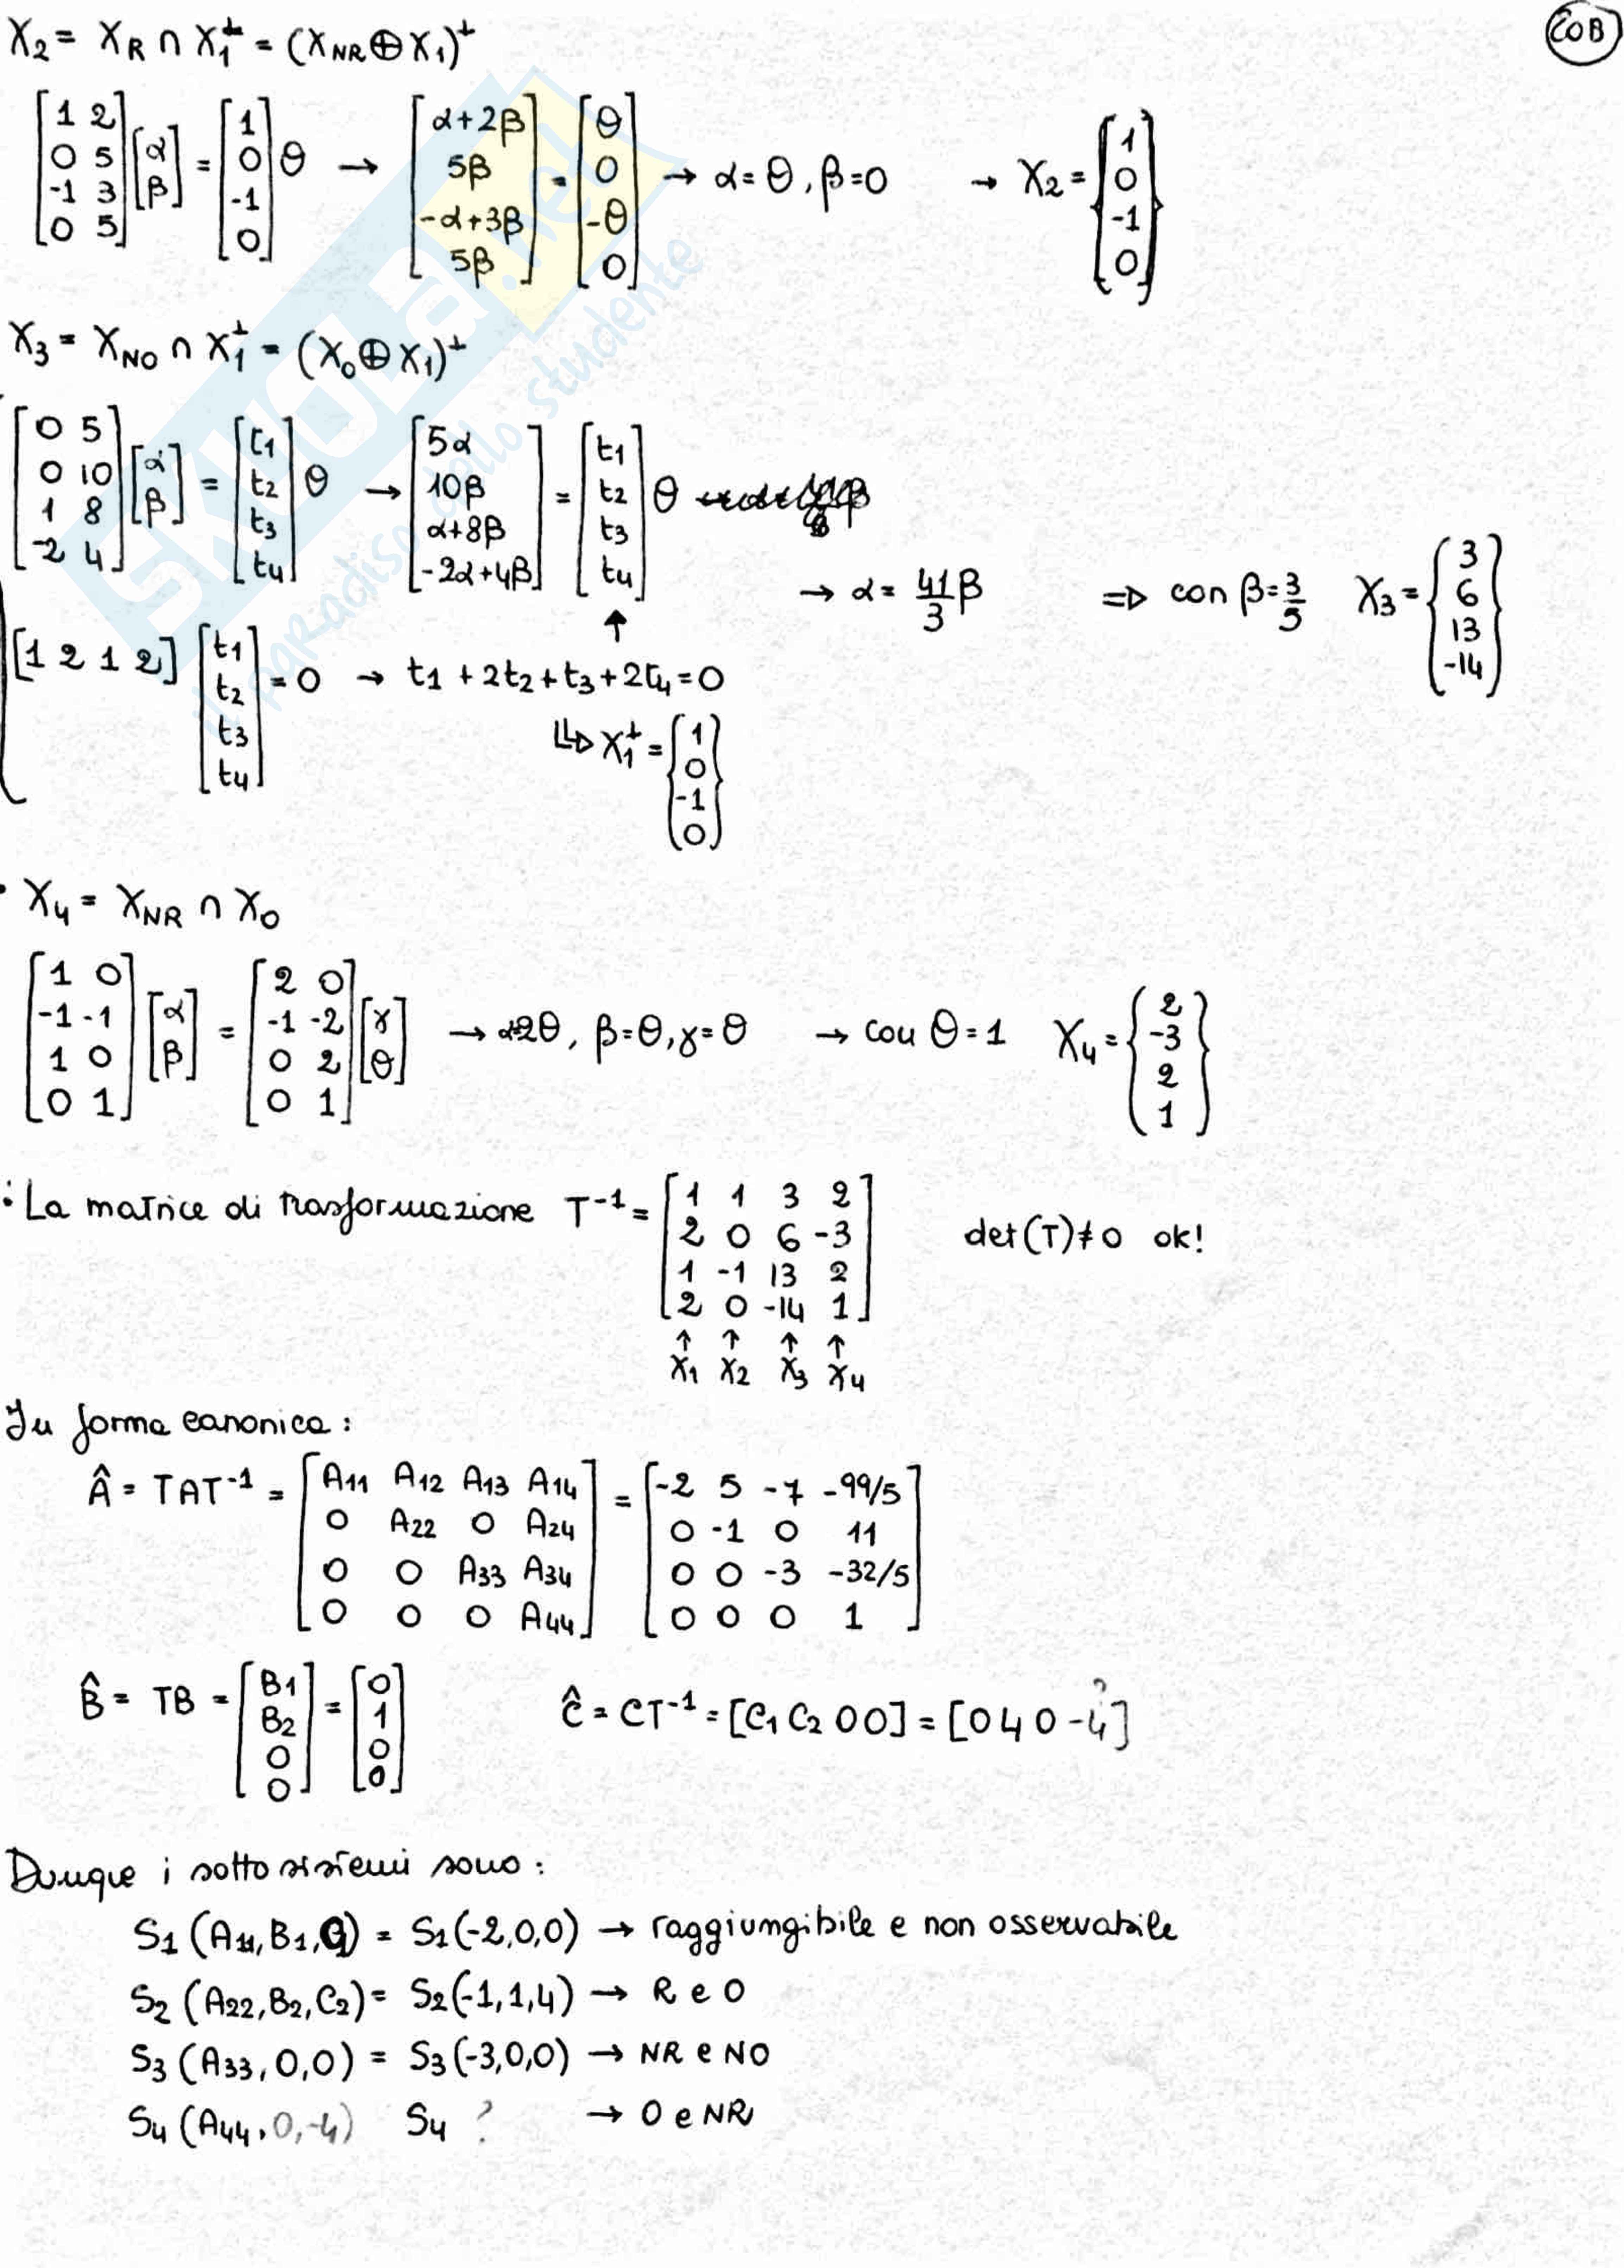 COB
X₂ = X_R ∩ X₁^⊥ = (X_NR ⊕ X₁)^⊥
[1 2; 0 5; -1 3; 0 5] [α; β] = [1; 0; -1; 0] θ → [α+2β; 5β; -α+3β; 5β] = [θ; 0; -θ; 0] → α = θ, β = 0 → X₂ = {1; 0; -1; 0}
X₃ = X_NO ∩ X₁^⊥ = (X₀ ⊕ X₁)^⊥
[0 5; 0 10; 1 8; -2 4] [α; β] = [t1; t2; t3; t4] θ → [5α; 10β; α+8β; -2α+4β] = [t1; t2; t3; t4] θ
→ α = 41/3 β ⇒ con β = 3/5 X₃ = {3; 6; 13; -14}
[1 2 1 2] [t1; t2; t3; t4] = 0 → t1 + 2t2 + t3 + 2t4 = 0
↳ X₁^⊥ = {1; 0; -1; 0}
• X₄ = X_NR ∩ X_O
[1 0; -1 -1; 1 0; 0 1] [α; β] = [2 0; -1 -2; 0 2; 0 1] [γ; θ] → α=2θ, β=θ, γ=θ → con θ = 1 X₄ = {2; -3; 2; 1}
: La matrice di trasformazione T⁻¹ = [1 1 3 2; 2 0 6 -3; 1 -1 13 2; 2 0 -14 1] det(T) ≠ 0 ok!
↑ ↑ ↑ ↑
X₁ X₂ X₃ X₄
In forma canonica:
Â = TAT⁻¹ = [A11 A12 A13 A14; 0 A22 0 A24; 0 0 A33 A34; 0 0 0 A44] = [-2 5 -7 -99/5; 0 -1 0 11; 0 0 -3 -32/5; 0 0 0 1]
B̂ = TB = [B1; B2; 0; 0] = [0; 1; 0; 0] Ĉ = CT⁻¹ = [C₁ C₂ 0 0] = [0 4 0 -4] ?
Dunque i sottosistemi sono:
S1 (A11, B1, C1) = S1(-2,0,0) → raggiungibile e non osservabile
S2 (A22, B2, C2) = S2(-1,1,4) → R e O
S3 (A33, 0, 0) = S3(-3,0,0) → NR e NO
S4 (A44, 0, -4) S4 ? → O e NR
SKUOLA.net
il paradiso dello studente